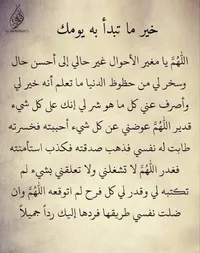 خير ما تبدأ به يومك
اللهُمَّ يا مغير الأحوال غير حالي إلى أحسن حال
وسخر لي من حظوظ الدنيا ما تعلم أنه خير لي
وأصرف عني كل ما هو شر لي إنك على كل شيء
قدير اللهُمَّ عوضني عن كل شيء أحببته فخسرته
طابت له نفسي فذهب صدقته فكذب استأمنته
فغدر اللهُمَّ لا تشغلني ولا تعلقني بشيء لم
تكتبه لي وقدر لي كل فرح لم اتوقعه اللهُمَّ وان
ضلت نفسي طريقها فردها إليك رداً جميلاً